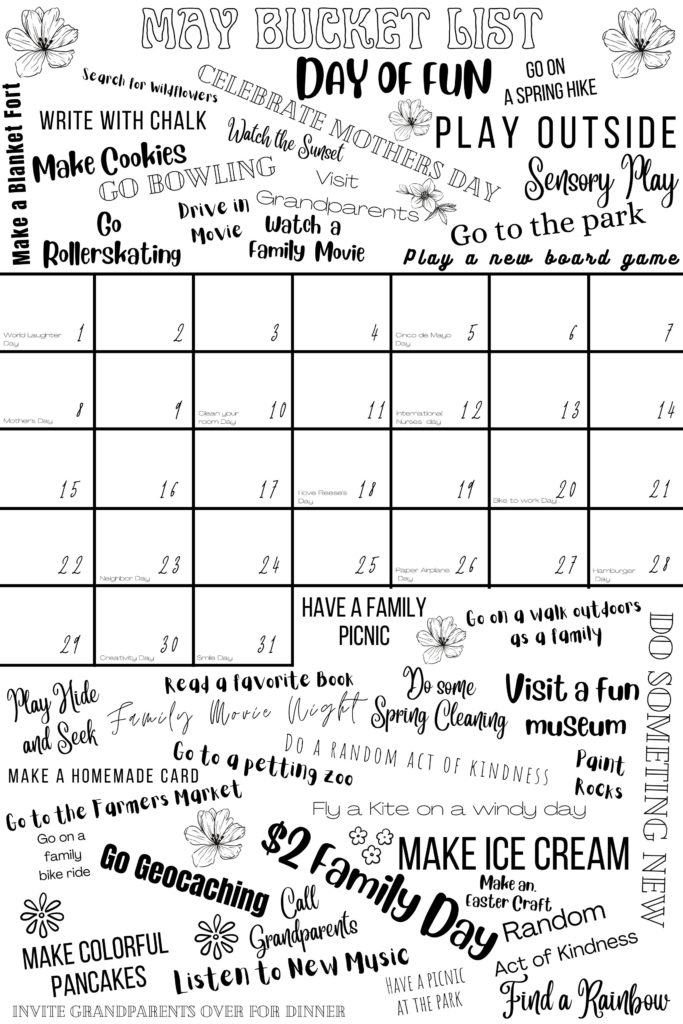 MAY BUCKET LIST
Search for Wildflowers
CELEBRATE MOTHERS DAY
DAY OF FUN
GO ON
A SPRING HIKE
Make a Blanket Fort
WRITE WITH CHALK
Watch the Sunset
PLAY OUTSIDE
Make Cookies
GO BOWLING
Visit
Grandparents
Sensory Play
Go
Rollerskating
Drive in
Movie
Watch a
Family Movie
Go to the park
Play a new board game
World Laughter
Day
1
2
3
4
Cinco de Mayo
Day
5
6
7
Mothers Day
8
9
Clean your
room Day
10
11
International
Nurses day
12
13
14
15
16
17
I love Reese's
Day
18
19
Bike to work Day
20
21
22
Neighbor Day
23
24
25
Paper Airplane
Day
26
27
Hamburger
Day
28
29
Creativity Day
30
Smile Day
31
HAVE A FAMILY
PICNIC
Go on a walk outdoors
as a family
DO SOMETING NEW
Play Hide
and Seek
Read a favorite Book
Family Movie Night
Do some
Spring Cleaning
Visit a fun
museum
MAKE A HOMEMADE CARD
Go to a petting zoo
DO A RANDOM ACT OF KINDNESS
Paint
Rocks
Go to the Farmers Market
Fly a Kite on a windy day
Go on a
family
bike ride
Go Geocaching
$2 Family Day
MAKE ICE CREAM
Make an
Easter Craft
Call
Grandparents
Random
Act of Kindness
MAKE COLORFUL
PANCAKES
Listen to New Music
HAVE A PICNIC
AT THE PARK
Find a Rainbow
INVITE GRANDPARENTS OVER FOR DINNER